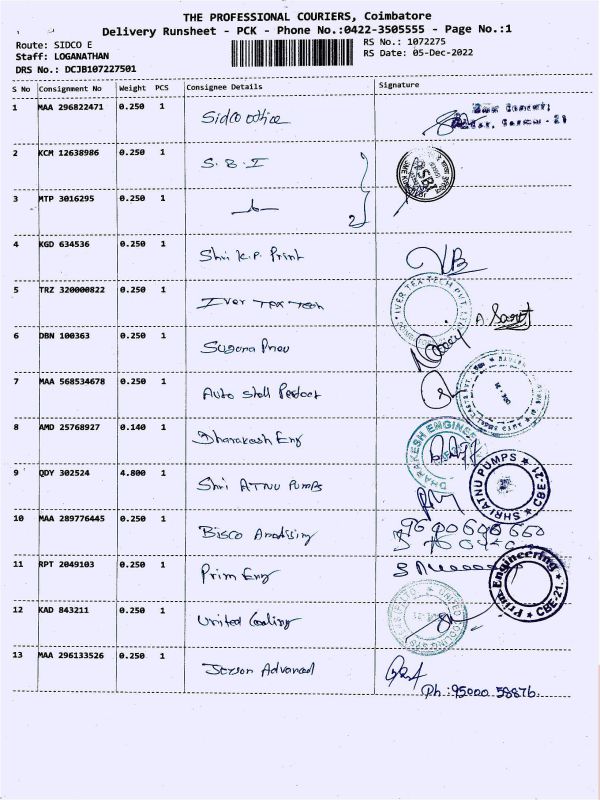 THE PROFESSIONAL COURIERS, Coimbatore
Delivery Runsheet - PCK - Phone No.:0422-3505555 - Page No.:1
Route: SIDCO E RS No.: 1072275
Staff: LOGANATHAN RS Date: 05-Dec-2022
DRS No.: DCJB107227501
S No Consignment No Weight PCS Consignee Details Signature
1 MAA 296822471 0.250 1 Sidco office
2 KCM 12638986 0.250 1 S.B.I SBI
3 MTP 3016295 0.250 1 2
4 KGD 634536 0.250 1 Shri K.P. Print VB
5 TRZ 320000822 0.250 1 Iver Tex Tech IVER TEX TECH PVT LTD
6 DBN 100363 0.250 1 Suguna
7 MAA 568534678 0.250 1
8 AMD 25768927 0.140 1 Dharakesh Eng DHARAKESH ENGINEE
9 QDY 302524 4.800 1 Shri ATNU Pumps SHRI ATNU PUMPS ★ CBE-21 ★
10 MAA 289776445 0.250 1 Bisco Anodising
11 RPT 2049103 0.250 1 Prim Eng Prim Engineering ★ CBE-21. ★
12 KAD 843211 0.250 1 United Cooling UNITED COOLING SYSTEMS
13 MAA 296133526 0.250 1 Advanced
Ph: 95000 58876.